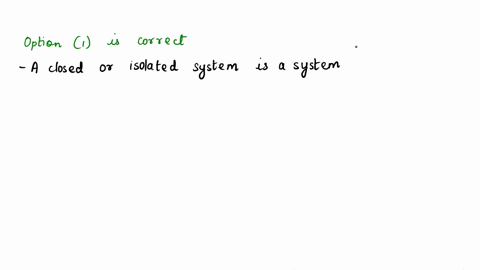 Option (1) is correct
- A closed or isolated system is a system